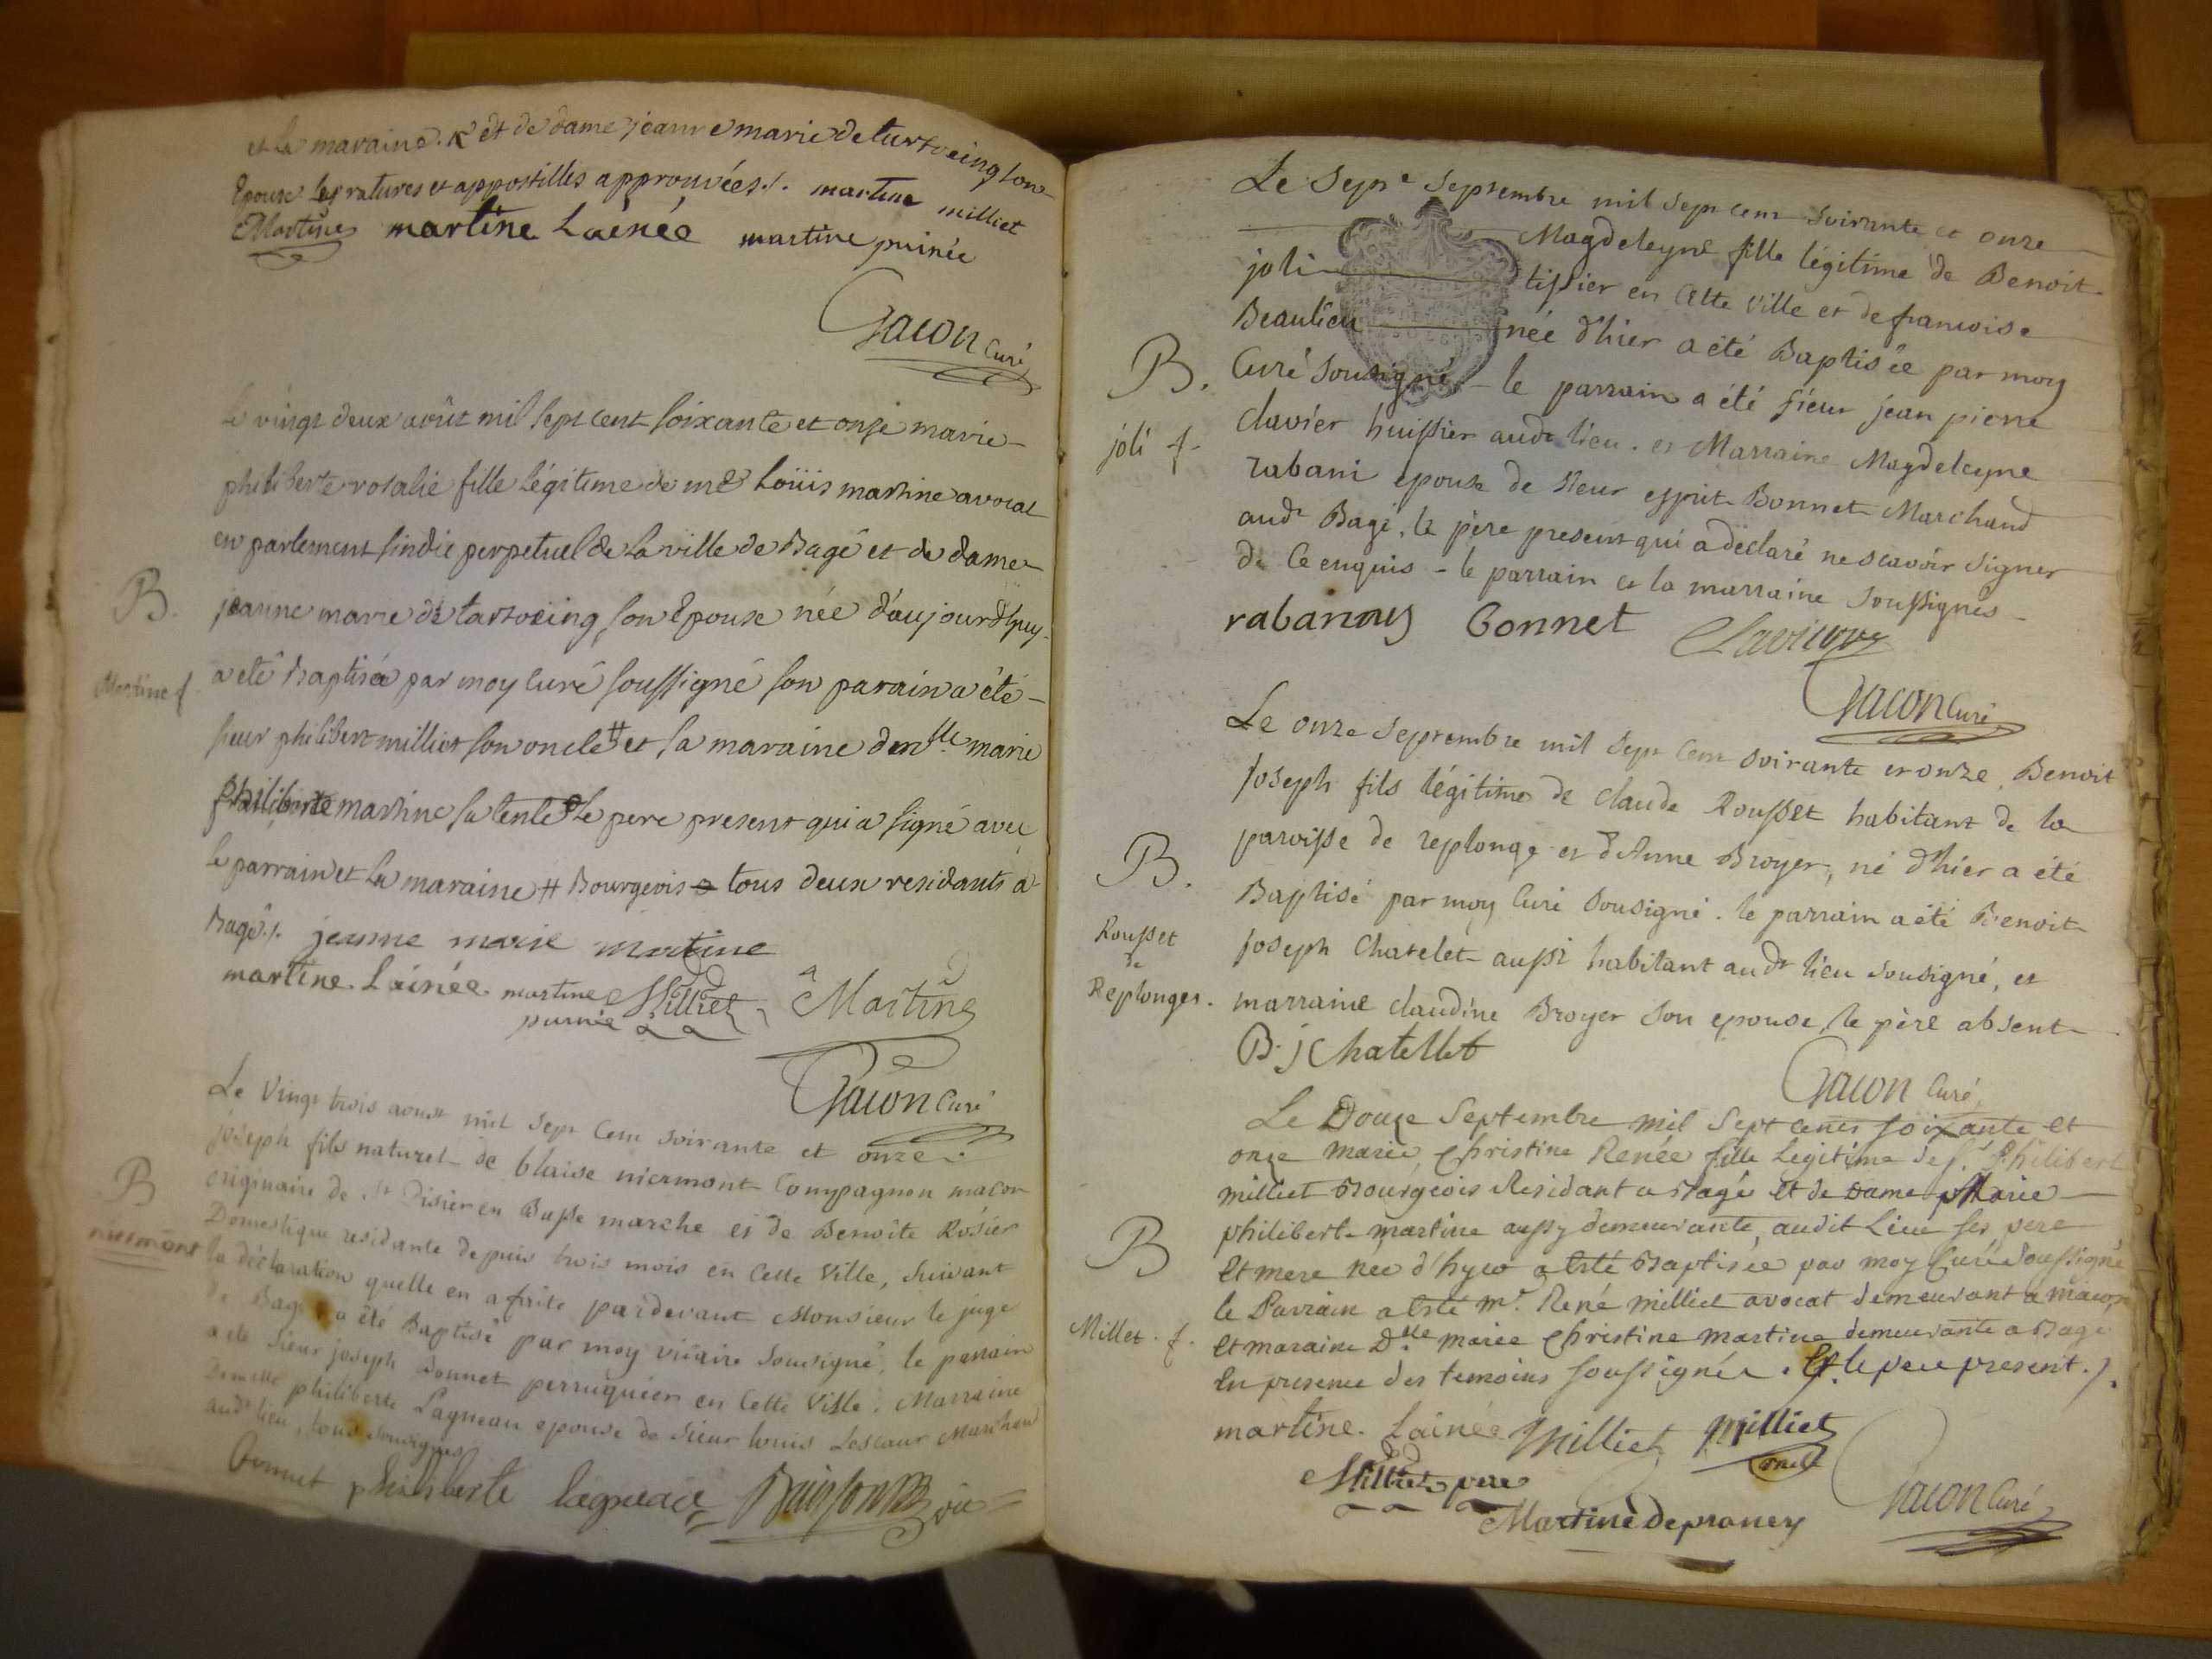 et la maraine. et de dame jeanne marie de tartoeing son
Epouse les ratures et appostilles approuvées./. martine milliet
Martine martine Lainée martine puinée
Gacon Curé
Le vingt deux août mil sept cent soixante et onze marie
philiberte rosalie fille légitime de me Loüis martine avocat
en parlement sindic perpetuel de la ville de Bagé et de dame
B.
jeanne marie de tartoeing son Epouse née d'aujourd'huy
Martine f.
a eté baptisée par moy curé soussigné son parain a été
sieur philibert milliet son oncle # et sa maraine demlle marie
philiberte martine sa tente Le pere present qui a signé avec
le parrain et la maraine # Bourgeois tous deux residants a
Bagé./. jeanne marie martine
martine Lainée martine puinée Milliet Martine
Gacon Curé
Le Vingt trois aoust mil sept cent soixante et onze
joseph fils naturel de blaise niermont Compagnon macon
B
originaire de St Disier en Basse marche et de Benoîte Rosier
Domestique residante depuis trois mois en cette Ville, suivant
niermont
la déclaration quelle en a faite pardevant Monsieur le juge
de Bagé a été Baptisé par moy vicaire sousigné, le parrain
a été sieur joseph Bonnet perruquier en cette Ville. Marraine
Demelle philiberte Lagneau epouse de sieur louis Lescaur Marchand
aud. lieu, tous sousignés
Bonnet philiberte lagneau vic
Le Sept Septembre mil sept cent soixante et onze
Magdeleyne fille légitime de Benoit
joli tissier en cette Ville et de francoise
Beaulieu née d'hier a été Baptisée par moy
B.
Curé Sousigné le parrain a été sieur jean pierre
joli f.
clavier huissier audt lieu. et Marraine Magdeleyne
rabani epouse de sieur esprit Bonnet Marchand
audt Bagé, le père present qui a declaré ne scavoir signer
de ce enquis - le parrain et la marraine soussignés
rabanny bonnet Clavier
Gacon Curé
Le onze Septembre mil sept cent soixante et onze, Benoit
joseph fils légitime de claude Rousset habitant de la
B.
paroisse de replonge et d'Anne Broyer, né d'hier a été
Baptisé par moy Curé Sousigné. le parrain a été Benoit
Rousset
de
Replonges.
joseph Chatelet aussi habitant audt lieu sousigné, et
marraine claudine Broyer son epouse, le père absent
B. j Chatellet
Gacon Curé
Le Douze Septembre mil Sept cents soixante et
onze marie Christine Renée fille Legitime de sr. Philibert
milliet Bourgeois Residant a Bagé et de Dame Marie
B
philibert martine aussy demeurante audit Lieu ses pere
Et mere née d'hyer a Esté Baptisée par moy Curé Soussigné
le Parrain a Esté mr. René milliet avocat demeurant a macon
Millet. f.
Et maraine Dlle marie Christine martine demeurante a Bagé
En presence des temoins soussignés. Et le pere present./.
martine. Lainée Milliet Milliet
Milliet pere
Martine depraney
Gacon Curé